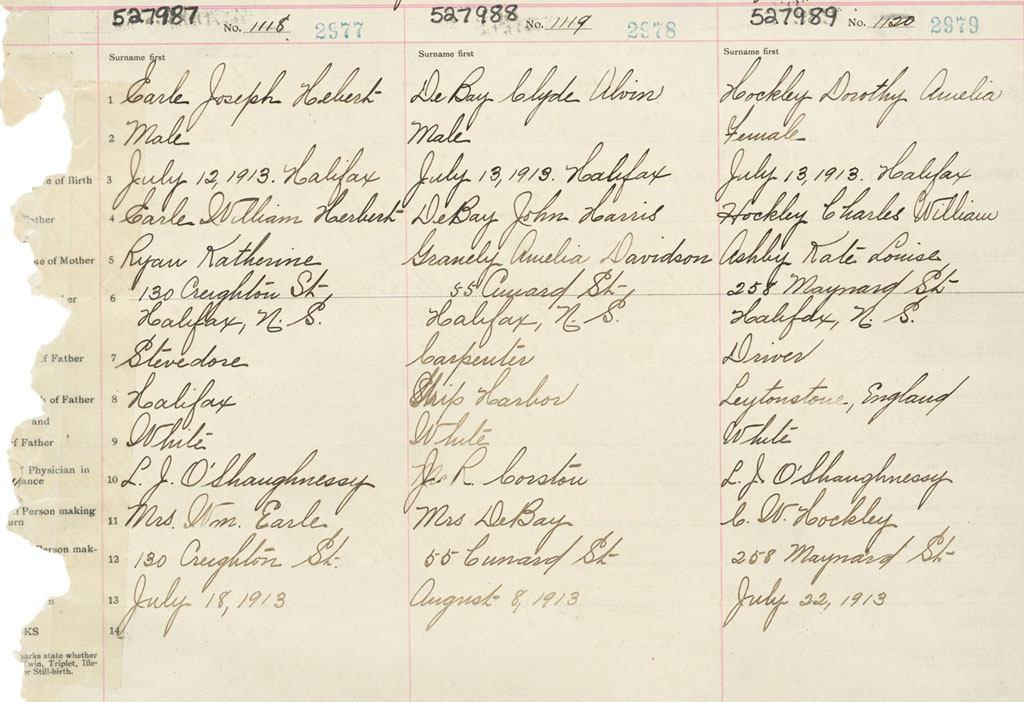 527987 527988 527989
No. 1118 2977 No. 1119 2978 No. 1120 2979
Surname first Surname first Surname first
1 Earle Joseph Hebert DeBay Clyde Alvin Hockley Dorothy Amelia
2 Male Male Female
e of Birth 3 July 12, 1913. Halifax July 13, 1913. Halifax July 13, 1913. Halifax
ather 4 Earle William Herbert DeBay John Harris Hockley Charles William
e of Mother 5 Ryan Katherine Amelia Davidson Ashby Kate Louise
er 6 130 Creighton St. 55 Cunard St. 258 Maynard St.
Halifax, N. S. Halifax, N. S. Halifax, N. S.
f Father 7 Stevedore Carpenter Driver
of Father 8 Halifax Ship Harbor Leytonstone, England
and
f Father 9 White White White
Physician in
ance 10 L. J. O'Shaughnessy J. R. Corston L. J. O'Shaughnessy
Person making
urn 11 Mrs. Wm. Earle Mrs DeBay C. W. Hockley
Person mak-
12 130 Creighton St. 55 Cunard St. 258 Maynard St.
n 13 July 18, 1913 August 8, 1913 July 22, 1913
KS 14
arks state whether
win, Triplet, Ille-
or Still-birth.